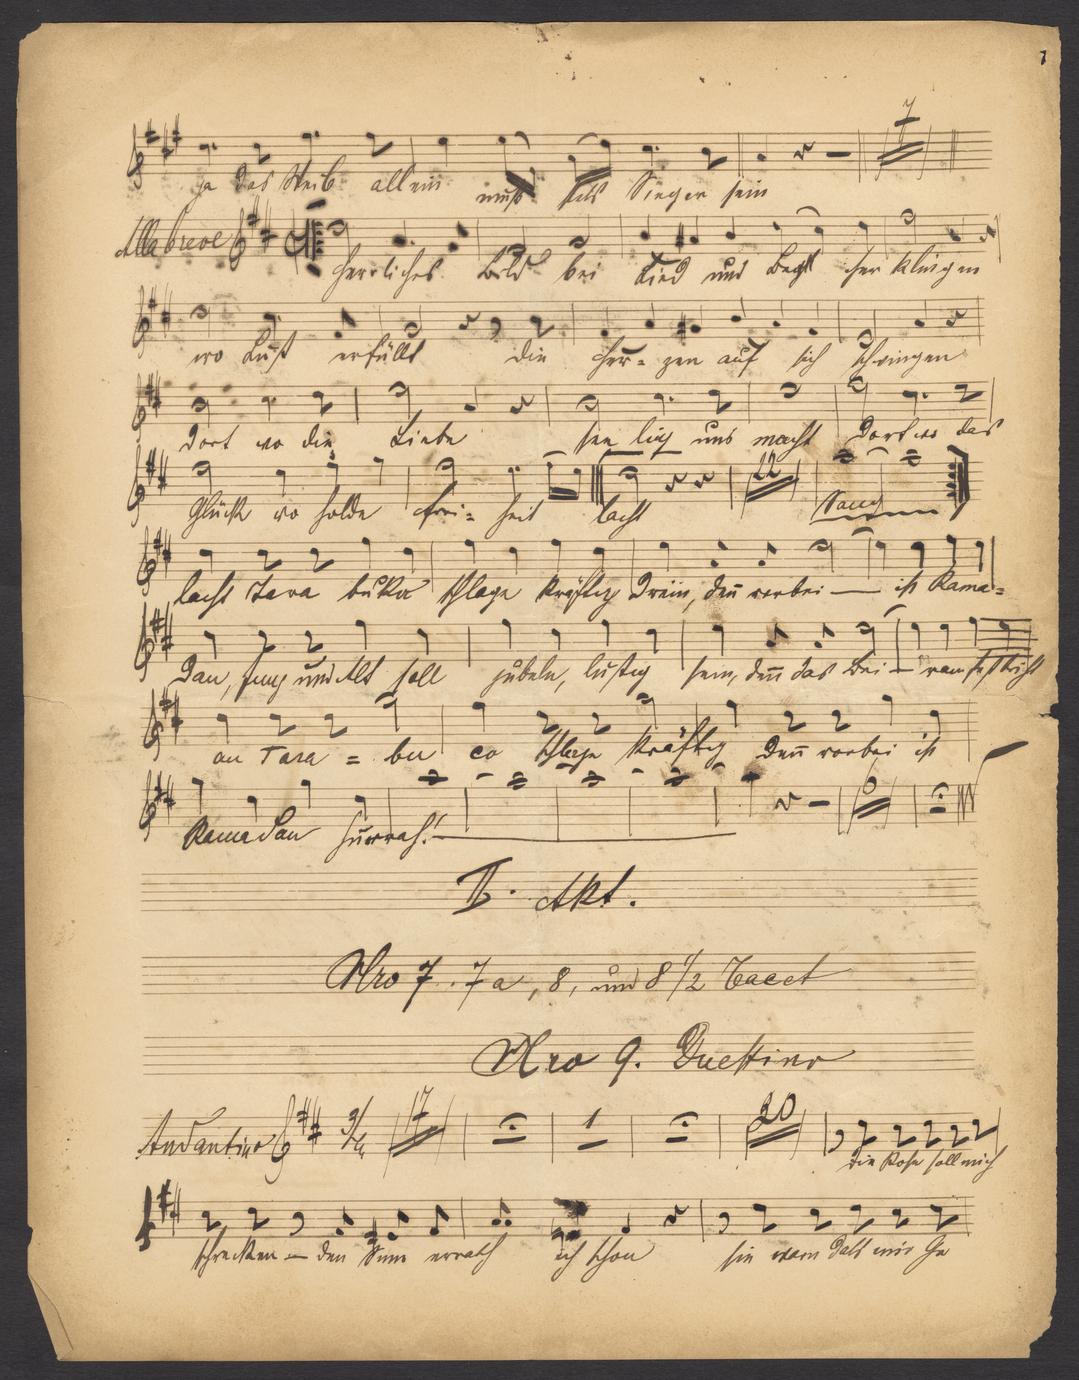 7
7
ja das Weib allein muß stets Sieger sein
Alla breve
herrliches Bild bei Lied und Bech her klingen
wo Lust erfüllt die Her= zen auf sich schwingen
Dort wo die Liebe see lig uns macht Dort wo das
22
Glück wo holde Frei= heit lacht Tanz
lacht Tara buka schlage kräftig drein, den̄ vorbei — ist Rama=
Dan, Jung und Alt soll jubeln, lustig sein, den̄ das Bei — ram fest bricht
an Tara = bu ca schlage kräftig Den̄ vorbei ist
6
Ramadan hurrah! —
II. Akt.
Nro 7. 7a, 8, und 8 1/2 Tacet
Nro 9. Duettino
Andantino 3/4 17 1 20
die Rose soll mich
schrecken — den Sinn errath ich schon sie warn daß mir Ge